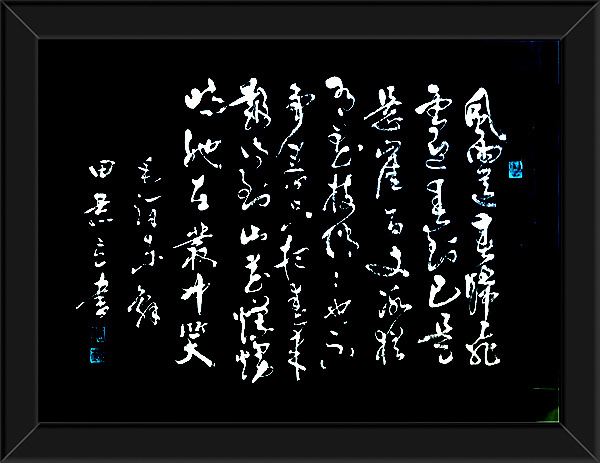 風雨送春歸飛
雪迎春到已是
懸崖百丈冰猶
有花枝俏〻也不
爭春只把春來
報待到山花爛熳
時她在叢中笑
毛澤東
田書